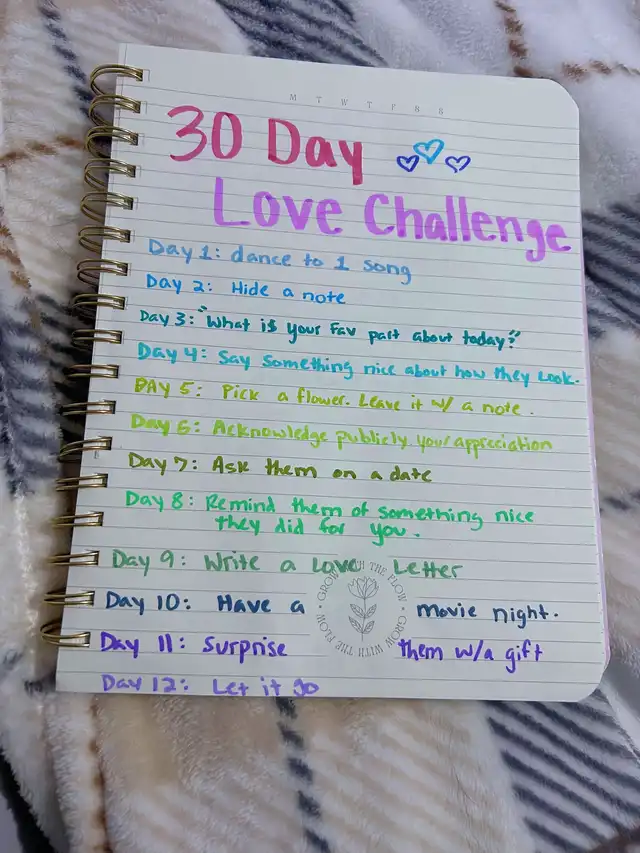 M T W T F S S
30 Day
Love Challenge
Day 1: dance to 1 song
Day 2: Hide a note
Day 3: "What is your fav part about today?"
Day 4: Say something nice about how they look.
DAY 5: Pick a flower. Leave it w/ a note.
Day 6: Acknowledge publicly your appreciation
Day 7: Ask them on a date
Day 8: Remind them of something nice
they did for you.
Day 9: Write a Love Letter
Day 10: Have a movie night.
Day 11: Surprise them w/a gift
Day 12: Let it go
GROW WITH THE FLOW • GROW WITH THE FLOW •